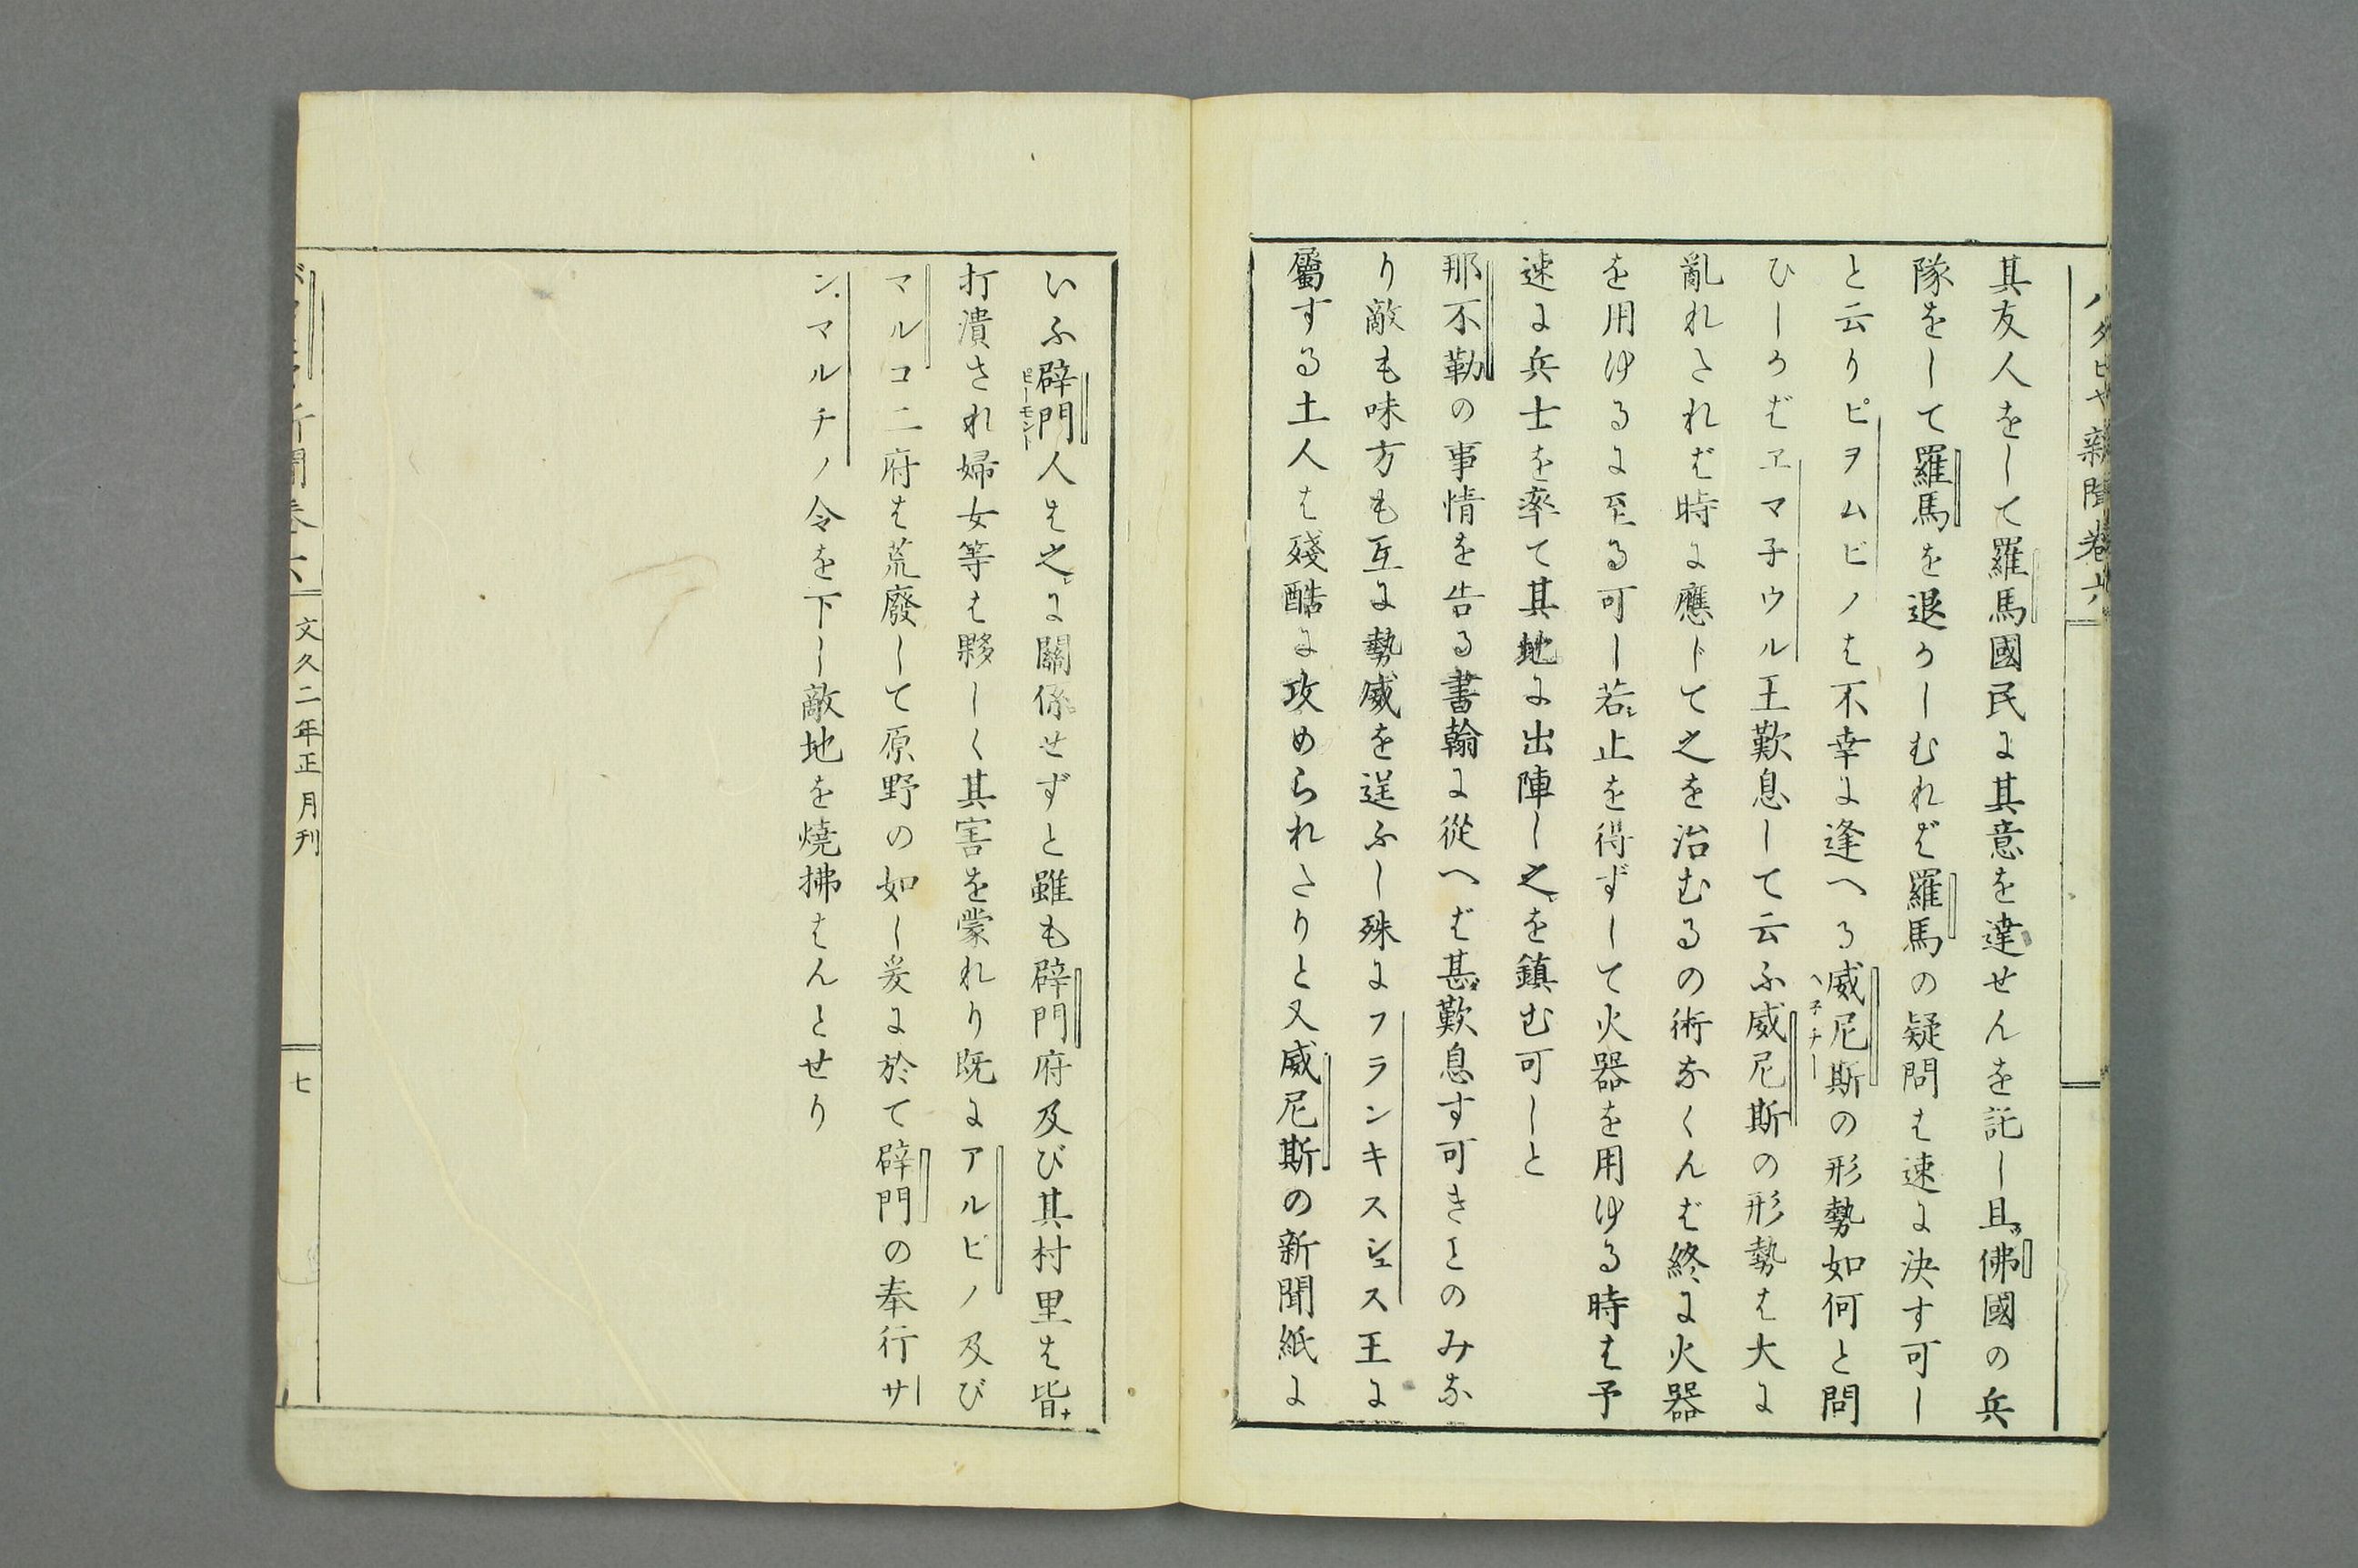 バタビヤ新聞巻六
其友人をして羅馬國民に其意を達せんを託し且佛國の兵
隊をして羅馬を退かしむれば羅馬の疑問は速に決す可し
と云りピヲムビノは不幸に逢へる威尼斯の形勢如何と問
ヘ子チー
ひしかばヱマ子ウル王歎息して云ふ威尼斯の形勢は大に
亂れされば時に應じて之を治むるの術なくんば終に火器
を用ゆるに至る可し若止を得ずして火器を用ゆる時は予
速に兵士を率て其地に出陣し之を鎮む可しと
那不勒の事情を告る書翰に從へば甚歎息す可きとのみな
り敵も味方も互に勢威を逞ふし殊にフランキスシヱス王に
屬する土人は殘酷に攻められたりと又威尼斯の新聞紙に
いふ辟門人は之に關係せずと雖も辟門府及び其村里は皆
ピーモント
打潰され婦女等は夥しく其害を蒙れり既にアルビノ及び
マルコ二府は荒廢して原野の如し爰に於て辟門の奉行サ
ン.マルチノ令を下し敵地を燒拂はんとせり
新聞巻六
文久二年正月刊
七